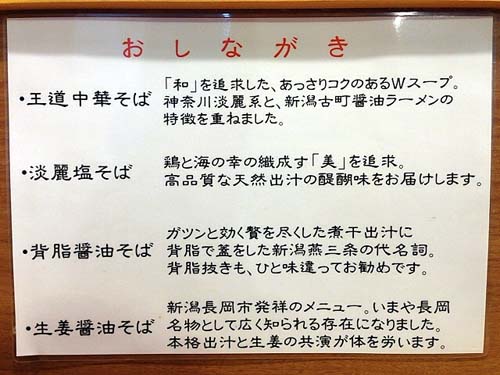 おしながき
・王道中華そば
「和」を追求した、あっさりコクのあるWスープ。
神奈川淡麗系と、新潟古町醤油ラーメンの
特徴を重ねました。
・淡麗塩そば
鶏と海の幸の織成す「美」を追求。
高品質な天然出汁の醍醐味をお届けします。
・背脂醤油そば
ガツンと効く贅を尽くした煮干出汁に
背脂で蓋をした新潟燕三条の代名詞。
背脂抜きも、ひと味違ってお勧めです。
・生姜醤油そば
新潟長岡市発祥のメニュー。いまや長岡
名物として広く知られる存在になりました。
本格出汁と生姜の共演が体を労います。